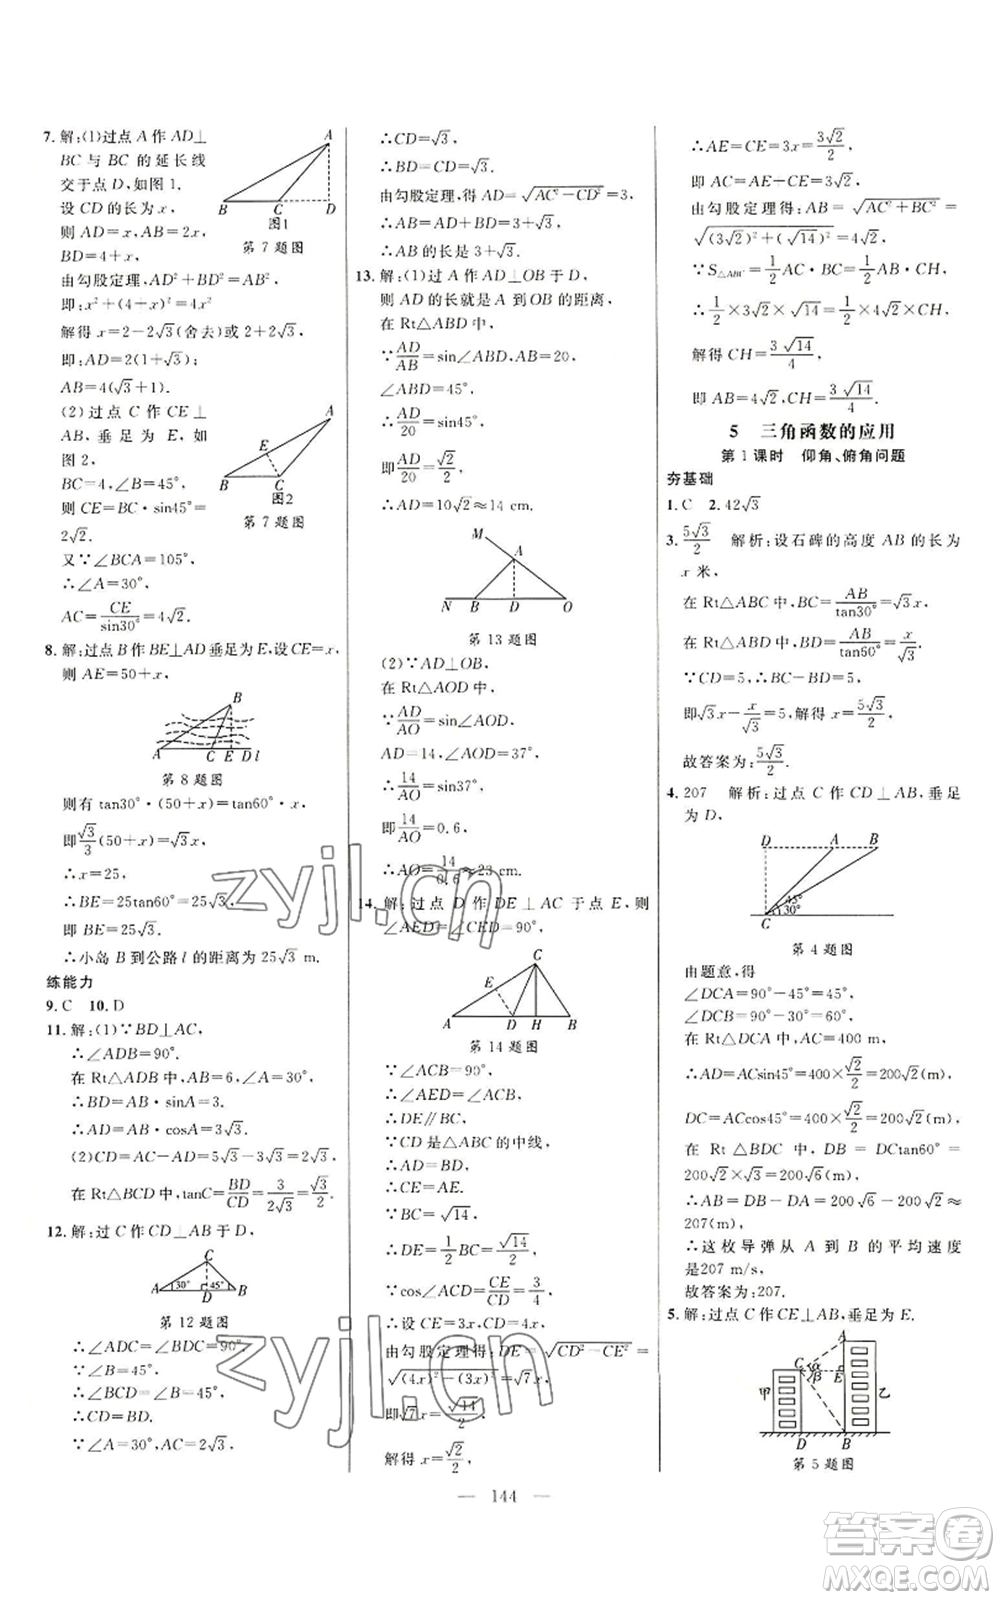 7. 解:(1)过点 A 作 AD⊥
BC 与 BC 的延长线
交于点 D,如图 1.
设 CD 的长为 x,
则 AD=x,AC=√2x,
A
B C D
图1
第 7 题图
由勾股定理,AD²+BD²=AB²,
即:x²+(4+x)²=(4√2+… 
解得 x=2-2√3(舍去)或 2+2√3,
即:AD=2(1+√3),
AB=4(√3+1).
(2)过点 C 作 CE⊥
AB,垂足为 E,如
图 2,
BC=4,∠B=45°,
则 CE=BC·sin45°=
2√2.
A
E
B C
图2
第 7 题图
又∵∠BCA=105°,
∴∠A=30°,
AC=CE/sin30°=4√2.
8. 解:过点 B 作 BE⊥AD 垂足为 E,设 CE=x,
则 AE=50+x,
B
A C E D l
第 8 题图
则有 tan30°·(50+x)=tan60°·x,
即√3/3(50+x)=√3x,
∴x=25,
∴BE=25tan60°=25√3,
即 BE=25√3,
∴小岛 B 到公路 l 的距离为 25√3 m.
练能力
9. C 10. D
11. 解:(1)∵BD⊥AC,
∴∠ADB=90°.
在 Rt△ADB 中,AB=6,∠A=30°,
∴BD=AB·sinA=3,
∴AD=AB·cosA=3√3.
(2)CD=AC-AD=5√3-3√3=2√3,
在 Rt△BCD 中,tanC=BD/CD=3/2√3=√3/2.
12. 解:过 C 作 CD⊥AB 于 D,
C
A 30° 45° B
D
第 12 题图
∴∠ADC=∠BDC=90°.
∵∠B=45°,
∴∠BCD=∠B=45°,
∴CD=BD.
∵∠A=30°,AC=2√3,
∴CD=√3,
∴BD=CD=√3.
由勾股定理,得 AD=√(AC²-CD²)=3,
∴AB=AD+BD=3+√3,
∴AB 的长是 3+√3.
13. 解:(1)过 A 作 AD⊥OB 于 D,
则 AD 的长就是 A 到 OB 的距离,
在 Rt△ABD 中,
∵AD/AB=sin∠ABD,AB=20,
∠ABD=45°,
∴AD/20=sin45°,
即AD/20=√2/2,
∴AD=10√2≈14 cm.
M
A
N B D O
第 13 题图
(2)∵AD⊥OB,
在 Rt△AOD 中,
∵AD/AO=sin∠AOD,
AD=14,∠AOD=37°,
∴14/AO=sin37°,
即14/AO=0.6,
∴AO=14/0.6≈23 cm.
14. 解:过点 D 作 DE⊥AC 于点 E,则
∠AED=∠CED=90°,
C
E
A D H B
第 14 题图
∵∠ACB=90°,
∴∠AED=∠ACB,
∴DE∥BC,
∵CD 是△ABC 的中线,
∴AD=BD,
∴CE=AE.
∵BC=√14,
∴DE=1/2BC=√14/2,
∵cos∠ACD=CE/CD=3/4,
∴设 CE=3x,CD=4x,
由勾股定理得:DE=√(CD²-CE²)
=√((4x)²-(3x)²)=√7x,
即√7x=√14/2,
解得 x=√2/2,
∴AE=CE=3x=3√2/2,
即 AC=AE+CE=3√2,
由勾股定理得:AB=√(AC²+BC²)=
√((3√2)²+(√14)²)=4√2,
∵S△ABC=1/2AC·BC=1/2AB·CH,
∴1/2×3√2×√14=1/2×4√2×CH,
解得 CH=3√14/4,
即 AB=4√2,CH=3√14/4.
5 三角函数的应用
第 1 课时 仰角、俯角问题
夯基础
1. C 2. 42√3
3. 5√3/2 解析:设石碑的高度 AB 的长为
x 米,
在 Rt△ABC 中,BC=AB/tan30°=√3x,
在 Rt△ABD 中,BD=AB/tan60°=x/√3.
∵CD=5,∴BC-BD=5,
即√3x-x/√3=5,解得 x=5√3/2,
故答案为:5√3/2.
4. 207 解析:过点 C 作 CD⊥AB,垂足
为 D,
D A B
45°
30°
C
第 4 题图
由题意,得
∠DCA=90°-45°=45°,
∠DCB=90°-30°=60°,
在 Rt△DCA 中,AC=400 m,
∴AD=ACsin45°=400×√2/2=200√2(m),
DC=ACcos45°=400×√2/2=200√2(m),
在 Rt△BDC 中,DB=DCtan60°=
200√2×√3=200√6(m),
∴AB=DB-DA=200√6-200√2≈
207(m),
∴这枚导弹从 A 到 B 的平均速度
是207 m/s,
故答案为:207.
5. 解:过点 C 作 CE⊥AB,垂足为 E.
A
C α E
β
甲 乙
D B
第 5 题图
— 144 —
zyjl.cn
zyjl.cn
答案圈
MXQE.COM